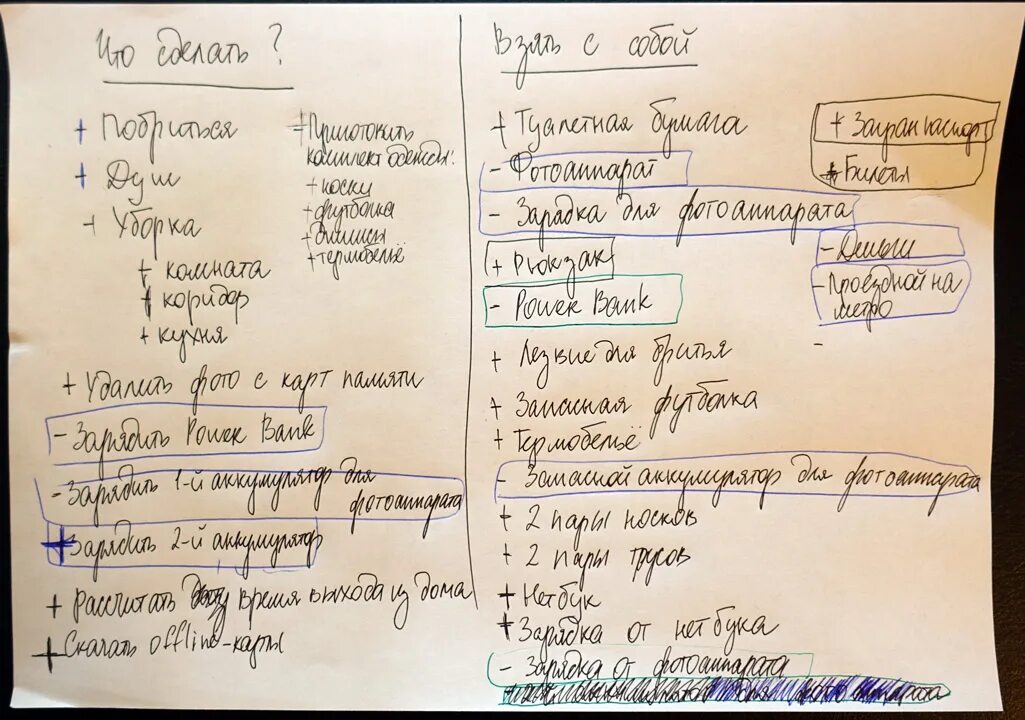 Что сделать?
+ Побриться
+ Душ
+ Уборка
+ комната
+ коридор
+ кухня
+ Приготовить
комплект одежды:
+ носки
+ футболка
+ термобельё
+ Удалить фото с карт памяти
- Зарядить Power Bank
- Зарядить 1-й аккумулятор для
фотоаппарата
+ Зарядить 2-й аккумулятор
+ Рассчитать время выхода из дома
+ Скачать offline-карты
Взять с собой
+ Туалетная бумага
- Фотоаппарат
- Зарядка для фотоаппарата
+ Рюкзак
- Power Bank
+ Лезвие для бритья
+ Запасная футболка
+ Термобельё
- Запасной аккумулятор для фотоаппарата
+ 2 пары носков
+ 2 пары трусов
+ Нетбук
+ Зарядка от нетбука
- Зарядка от фотоаппарата
+ Загранпаспорт
+ Билеты
- Деньги
- Проездной на
метро
-